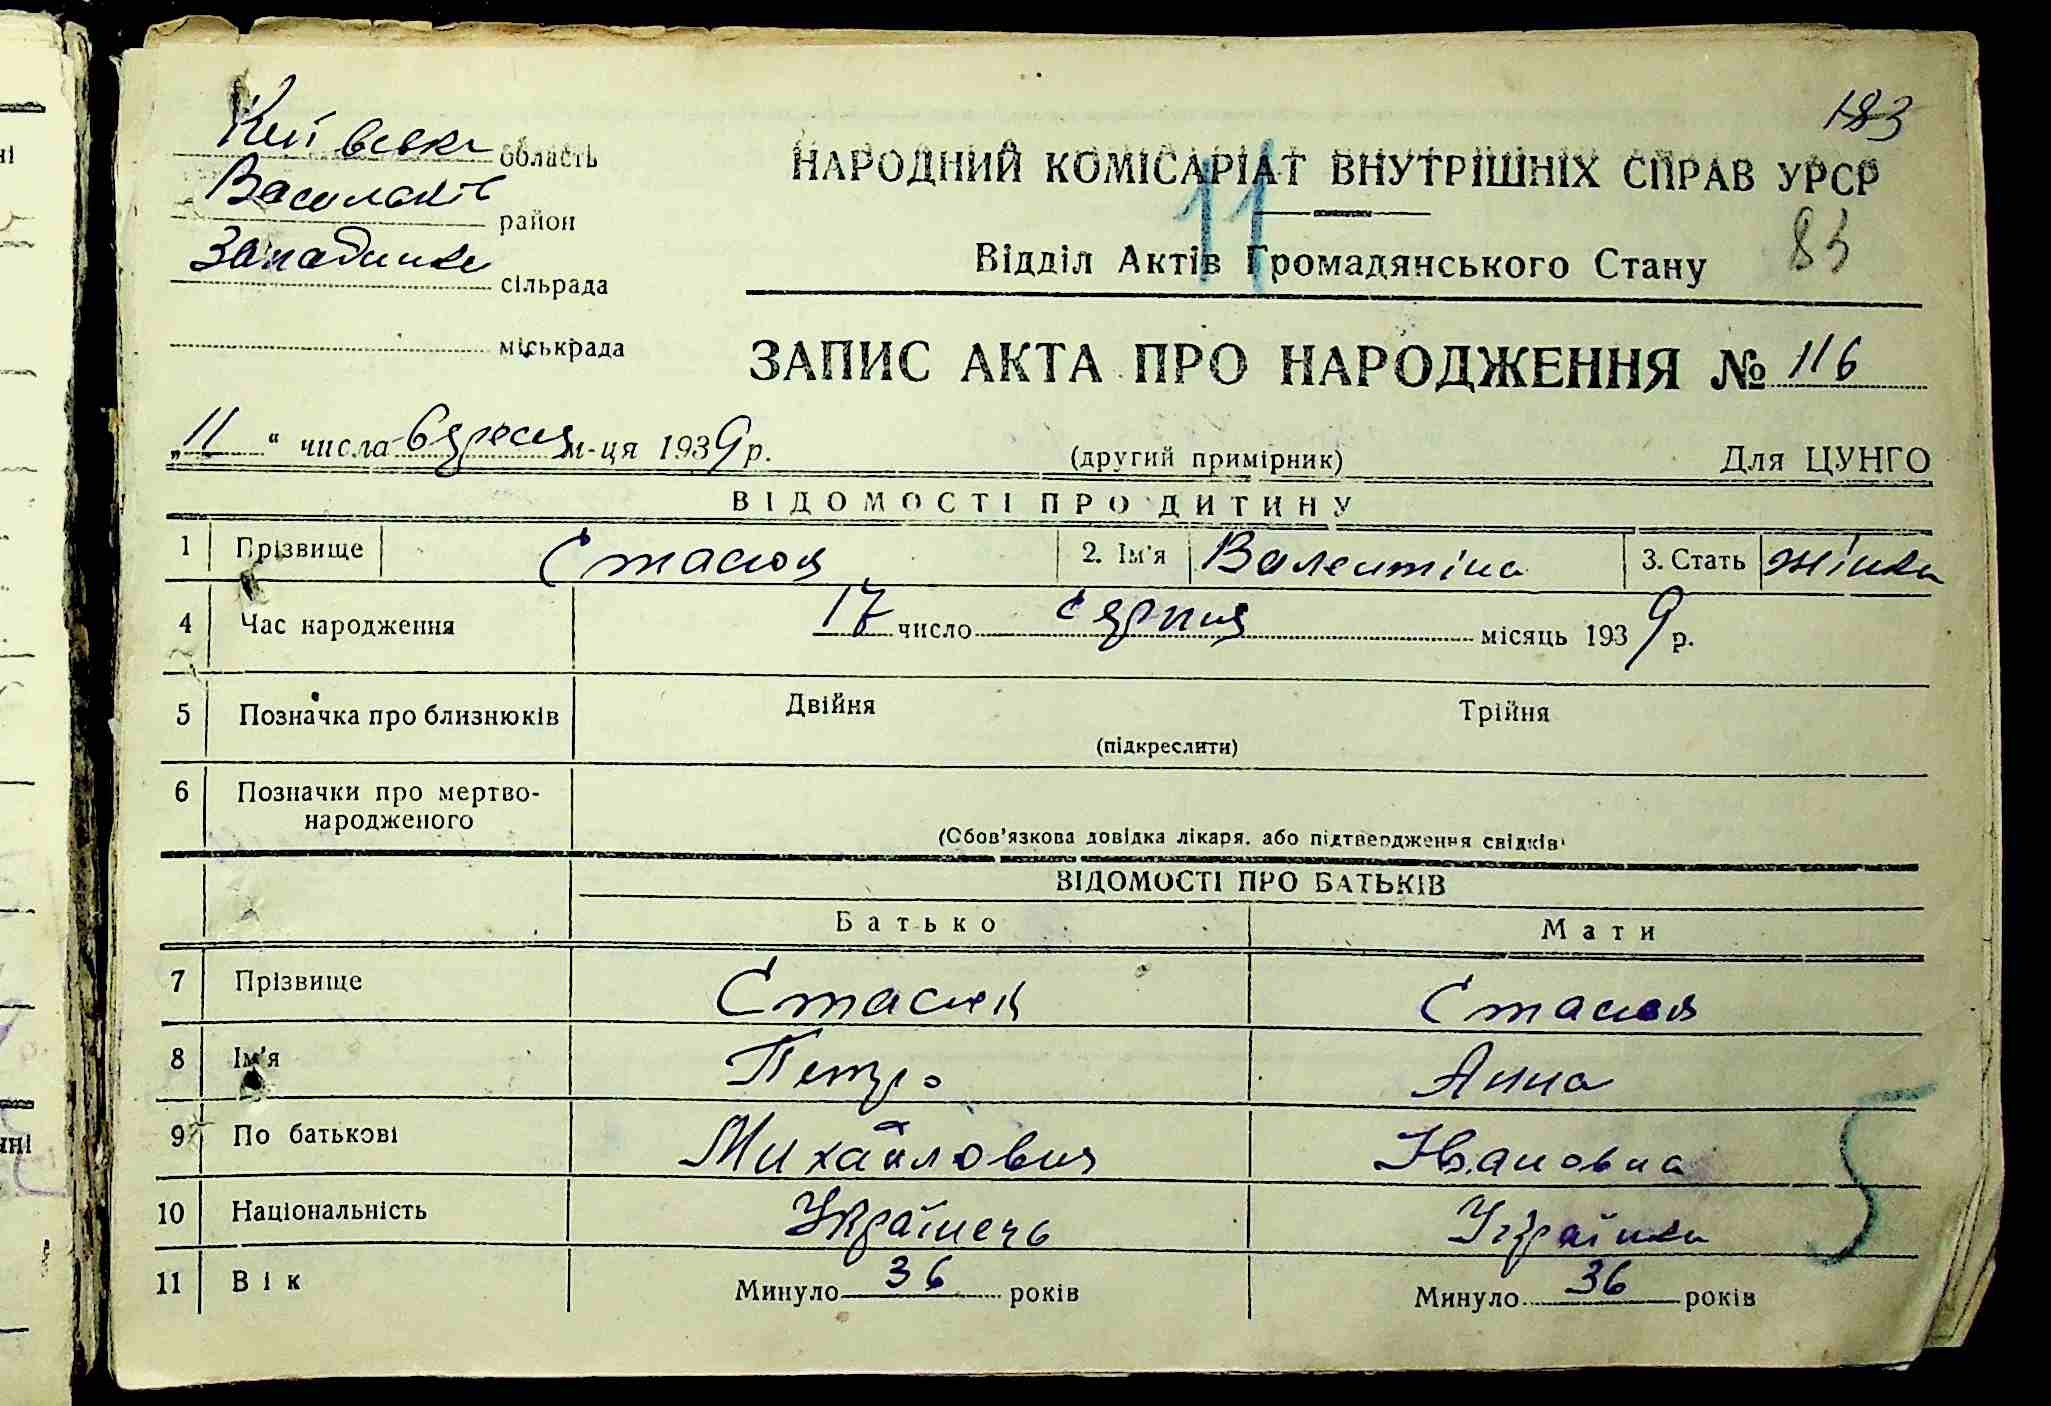 183
Київська область
Васильків район
Западинка сільрада
міськрада
НАРОДНИЙ КОМІСАРІАТ ВНУТРІШНІХ СПРАВ УРСР
11
83
Відділ Актів Громадянського Стану
ЗАПИС АКТА ПРО НАРОДЖЕННЯ № 116
„11“ числа вересня м-ця 1939 р.
(другий примірник)
Для ЦУНГО
ВІДОМОСТІ ПРО ДИТИНУ
1 Прізвище Стасюк 2. Ім'я Валентіна 3. Стать жінка
4 Час народження 17 число серпня місяць 1939 р.
5 Позначка про близнюків Двійня Трійня
(підкреслити)
6 Позначки про мертво-
народженого
(Обов'язкова довідка лікаря, або підтвердження свідків)
ВІДОМОСТІ ПРО БАТЬКІВ
Батько Мати
7 Прізвище Стасюк Стасюк
8 Ім'я Петро Анна
9 По батькові Михайлович Івановна
10 Національність Українець Українка
5
11 Вік Минуло 36 років Минуло 36 років